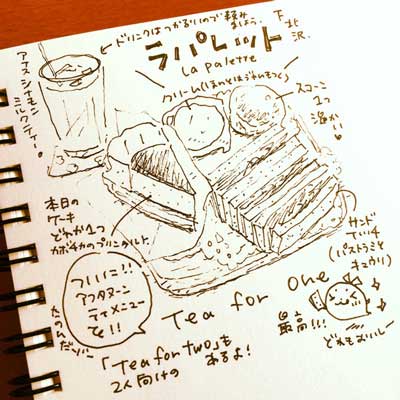 ドリンクはつかないので頼み
ましょう。
下北沢。
ラパレット
La palette
アイスシナモン
ミルクティー。
クリーム
スコーン
1つ
温かい
本日の
ケーキ
どれか1つ
カボチャのプリンタルト。
サンド
てぃっち
(パストラミと
キュウリ)
ついに!!
アフタヌーン
ティメニュー
を!!
たのんだゾー
Tea for One
「Tea for two」も
あるよ!
2人向けの
最高!!!
どれもおいしー